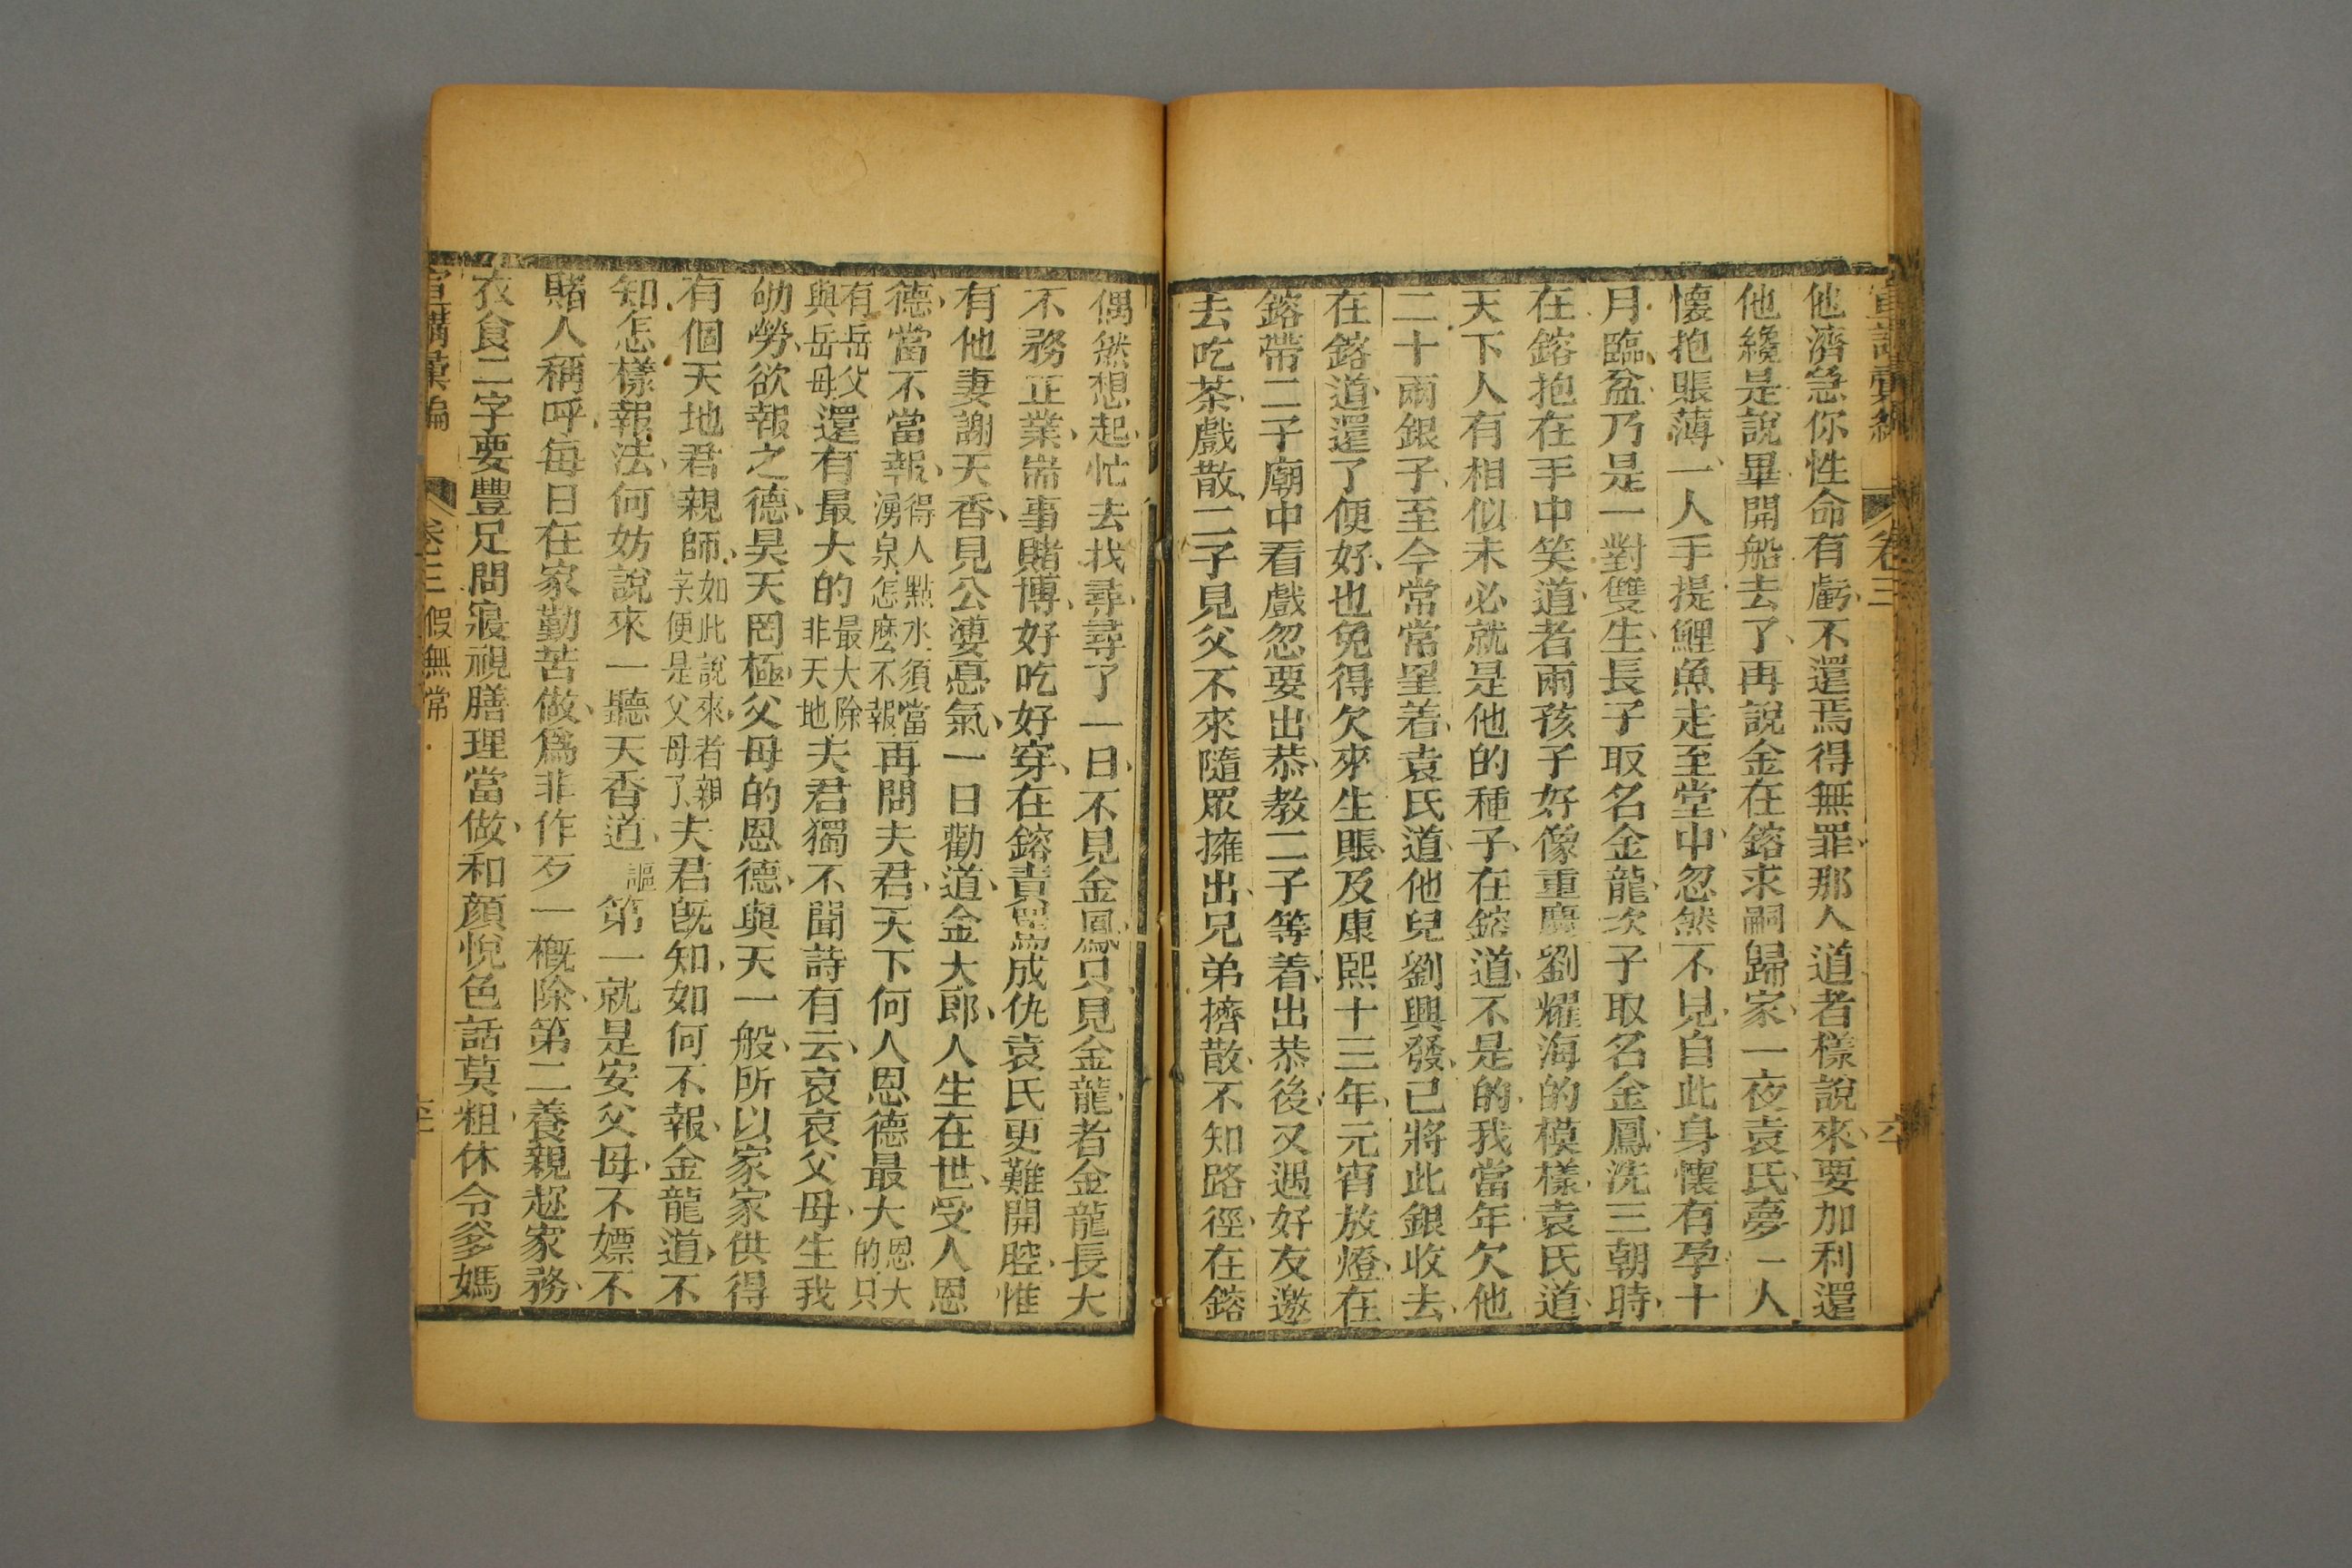 宣講彙編 卷三
他濟急你性命有虧不還焉得無罪那人道者樣說來要加利還
他纔是說畢開船去了再說金在鎔求嗣歸家一夜袁氏夢一人
懷抱賬薄一人手提鯉魚走至堂中忽然不見自此身懷有孕十
月臨盆乃是一對雙生長子取名金龍次子取名金鳳洗三朝時
在鎔抱在手中笑道者兩孩子好像重慶劉耀海的模樣袁氏道
天下人有相似未必就是他的種子在鎔道不是的我當年欠他
二十兩銀子至今常常罣着袁氏道他兒劉興發已將此銀收去
在鎔道還了便好也免得欠來生賬及康熙十三年元宵放燈在
鎔帶二子廟中看戲忽要出恭教二子等着出恭後又遇好友邀
去吃茶戲散二子見父不來隨眾擁出兄弟擠散不知路徑在鎔
偶然想起忙去找尋尋了一日不見金鳳只見金龍者金龍長大
不務正業耑事賭博好吃好穿在鎔責罵成仇袁氏更難開腔惟
有他妻謝天香見公婆慪氣一日勸道金大郎人生在世受人恩
德當不當報得人點水須當湧泉怎麽不報再問夫君天下何人恩德最大恩大的只
有岳父與岳母還有最大的最大除非天地夫君獨不聞詩有云哀哀父母生我
劬勞欲報之德昊天罔極父母的恩德與天一般所以家家供得
有個天地君親師如此說來者親字便是父母了夫君既知如何不報金龍道不
知怎樣報法何妨說來一聽天香道謳第一就是安父母不嫖不
賭人稱呼每日在家勤苦做爲非作歹一概除第二養親趂家務
衣食二字要豐足問寢視膳理當做和顔悅色話莫粗休令爹媽
宣講彙編 卷三 假無常